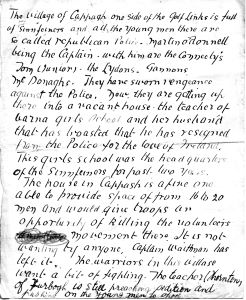 The village of Cappagh one side of the Golf Links is full
of Sinnfeiners and all the young men there are
so called republican Police. Martin o donnell
being the Captain. with him are the Conneely's
Tom Cunion. the Lydons. Fannons
Mc Donaghs. They have sworn vengeance
against the Police. Now they are getting up
there into a vacant house. the teacher of
Barna girls School and her husband
that has boasted that he has resigned
from the Police for the love of Ireland.
This girls school was the head quarter
of the Sinnfeiners for past two years.
The house in Cappagh is a fine one
able to provide space of from 16 to 20
men and would give troops an
opportunity of killing the volunteer
movement there. It is not
wanting by anyone, Captain Waithman has
left it. The warriors in this village
want a bit of fighting. The teacher
of Furbogh is still preaching sedition and
on the young men to